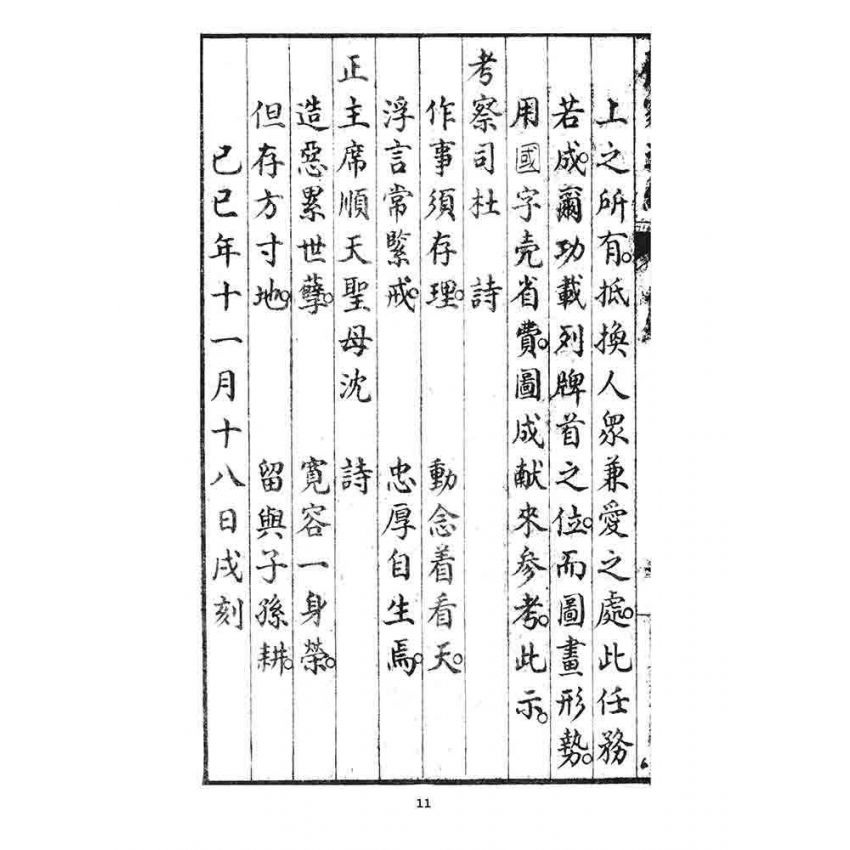 上之所有。抵換人眾兼愛之處。此任務
若成。爾功載列牌首之位。而圖畫形勢。
用國字壳省費。圖成献來參考。此示。
考察司杜　詩
作事須存理。　動念着看天。
浮言常緊戒。　忠厚自生焉。
正主席順天聖母沈　詩
造惡累世孽。　寬容一身榮。
但存方寸地。　留與子孫耕。
己巳年十一月十八日戌刻
11